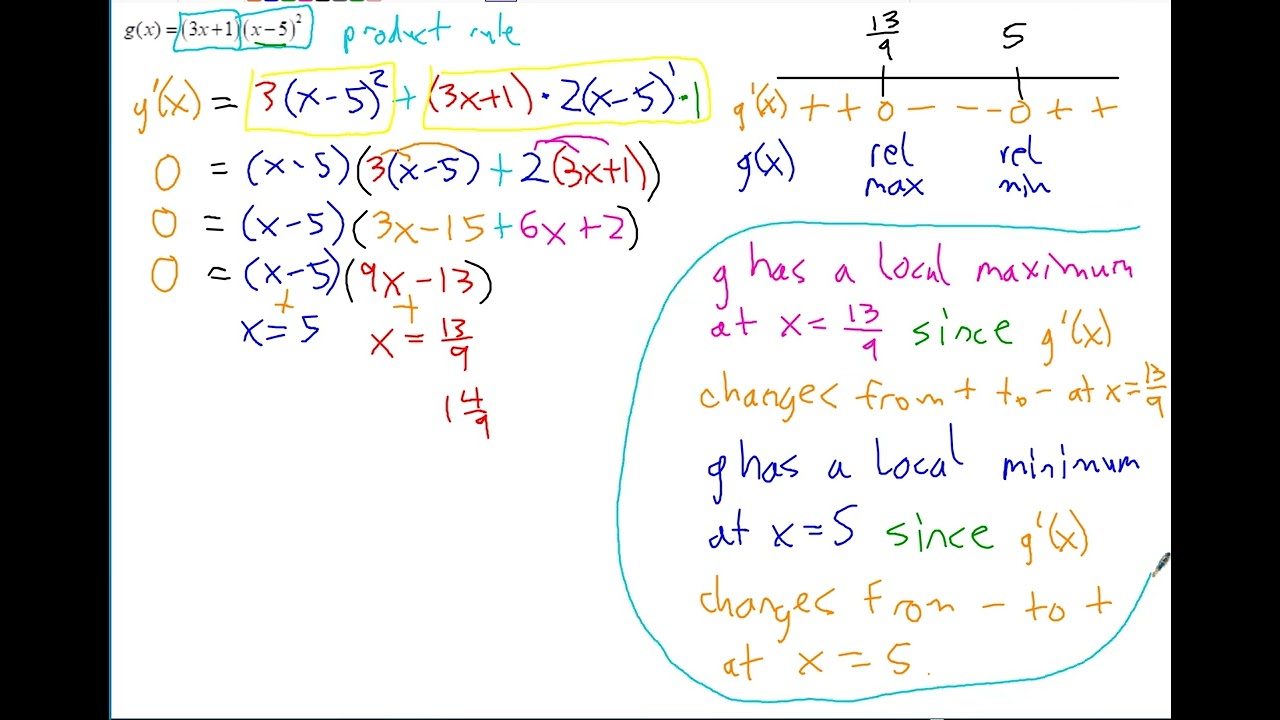 g(x) = (3x+1)(x−5)² product rule
g'(x) = 3(x−5)² + (3x+1)·2(x−5)¹·1
0 = (x−5)(3(x−5) + 2(3x+1))
0 = (x−5)(3x−15+6x+2)
0 = (x−5)(9x−13)
x=5 x = 13/9
1 4/9
13/9 5
g'(x) + + 0 − − − 0 + +
g(x) rel max rel min
g has a local maximum
at x = 13/9 since g'(x)
changes from + to − at x = 13/9
g has a local minimum
at x = 5 since g'(x)
changes from − to +
at x = 5.